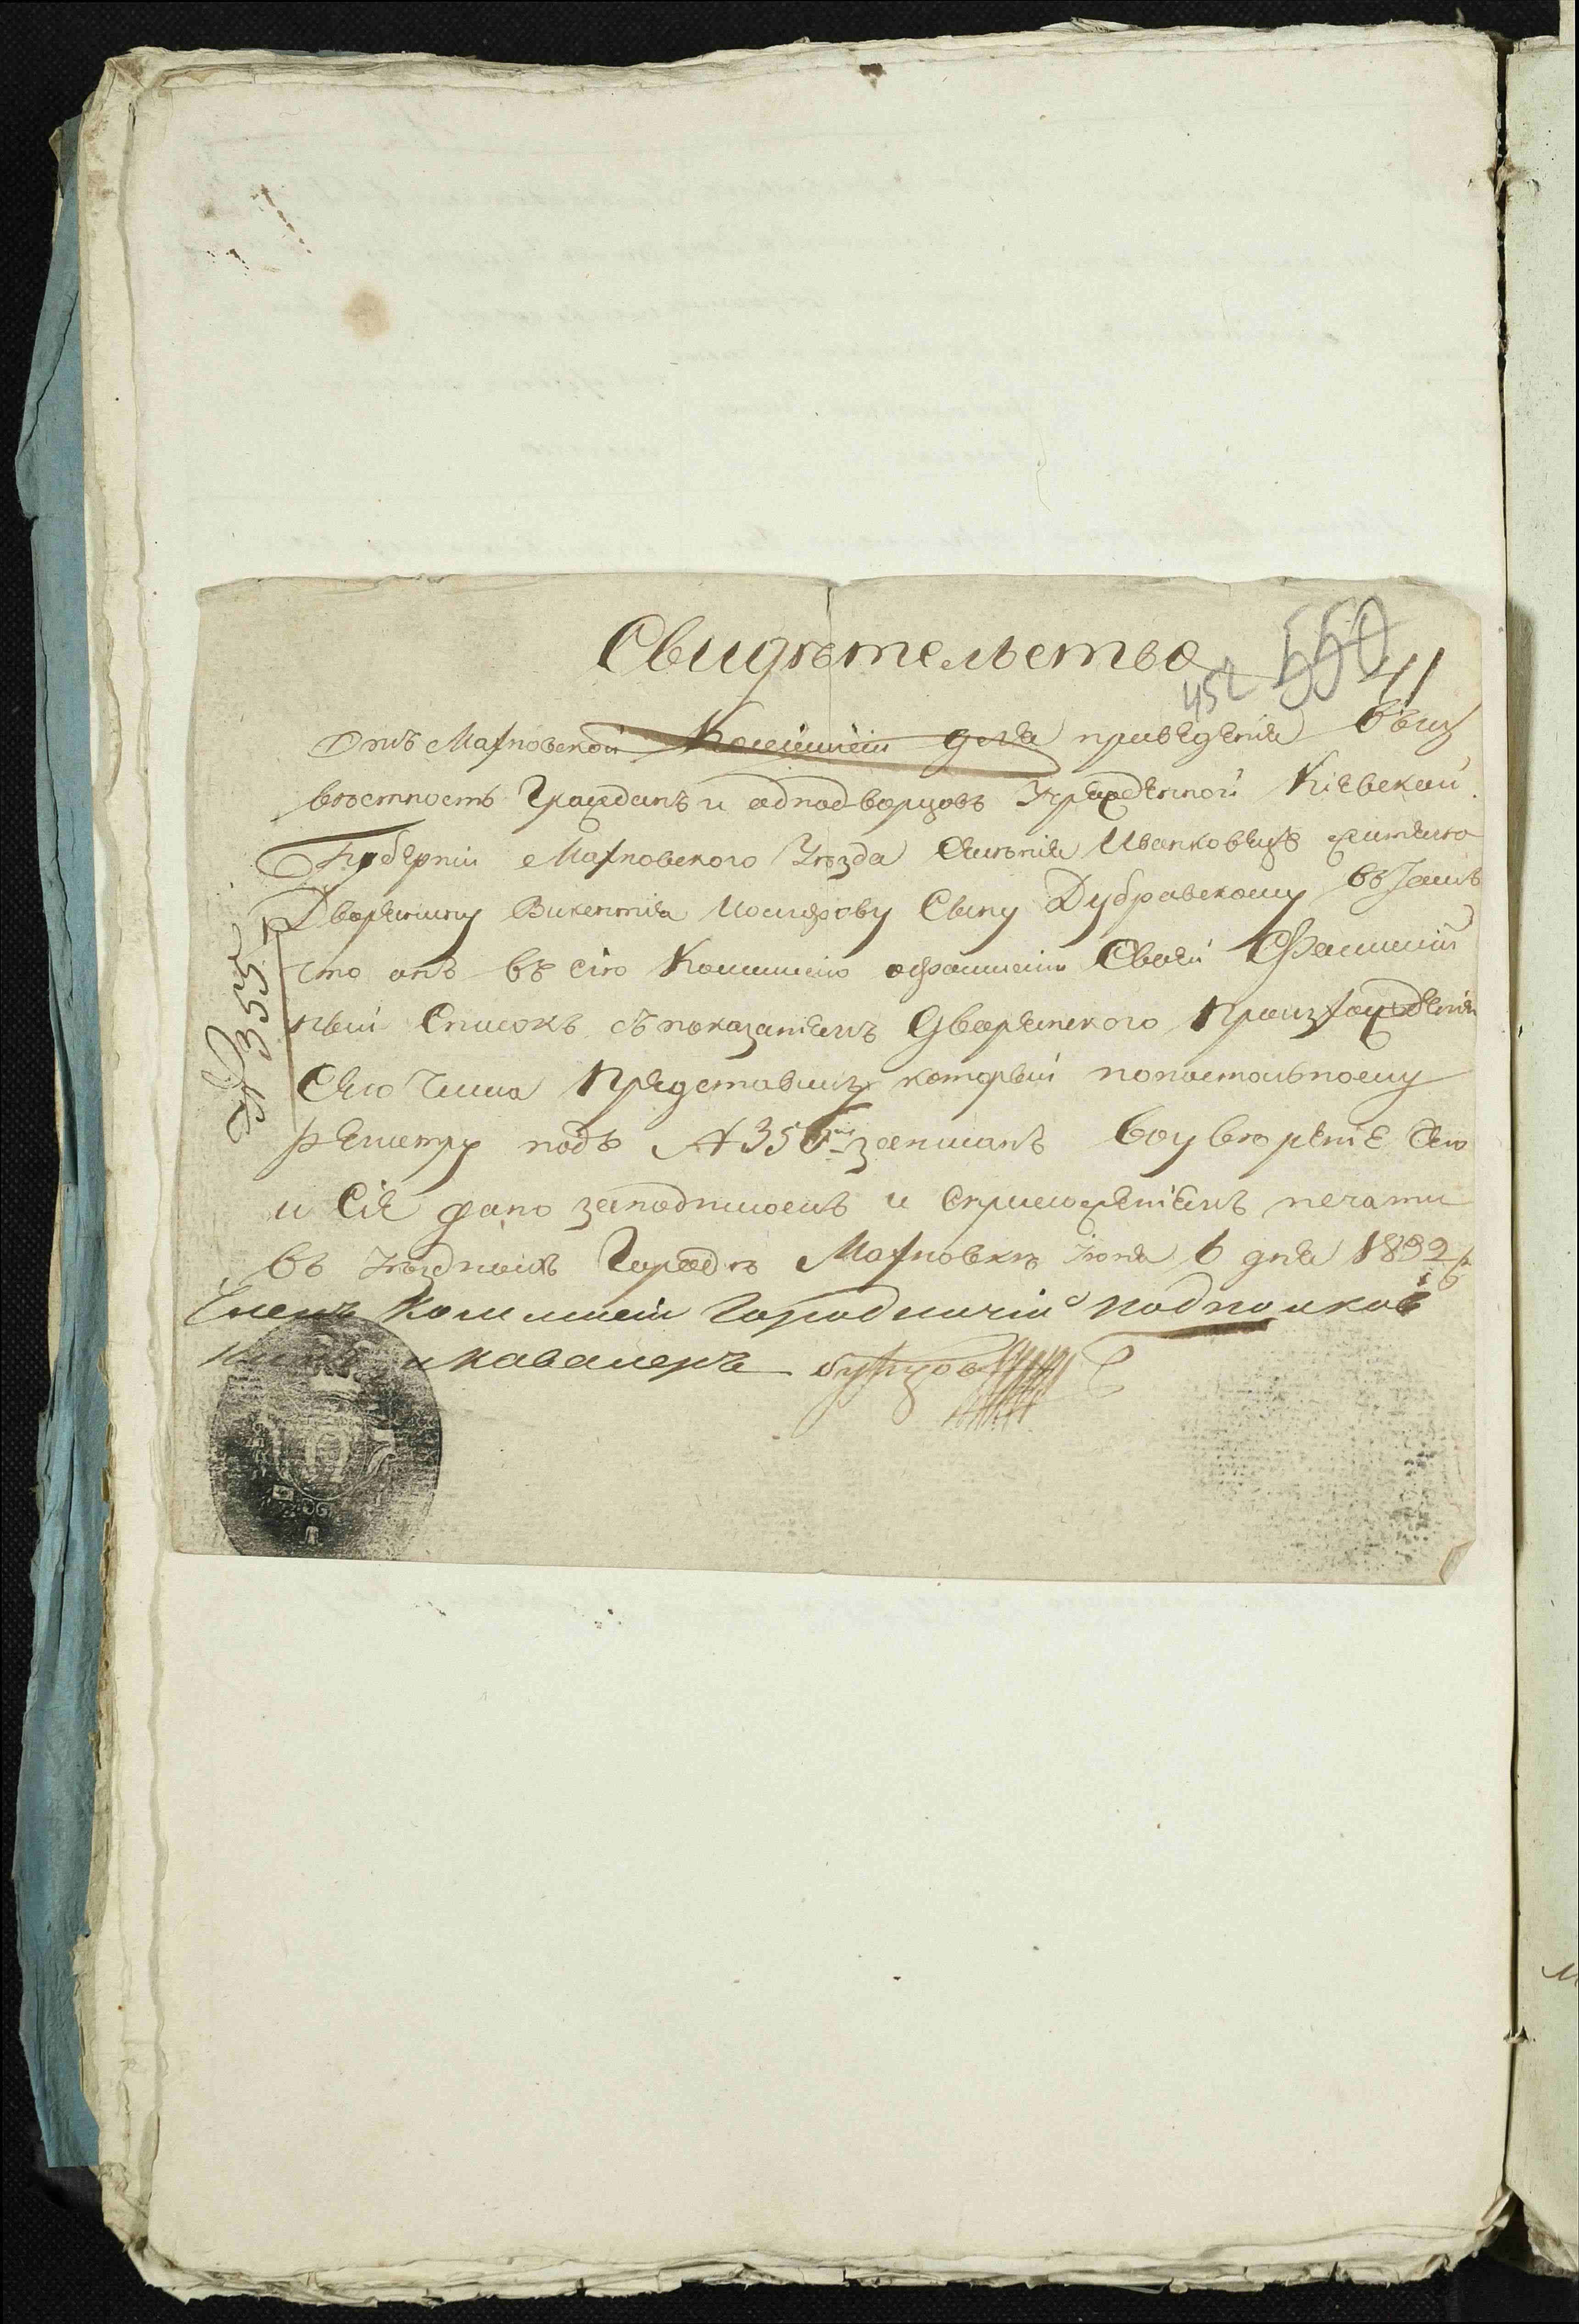 Свидѣтельство
550
452
41
Отъ Махновской Коммисіи для приведенія въ из
вѣстность Гражданъ и однодворцовъ Учрежденной Кіевской
Губерніи Махновского Уѣзда Селенія Иванковецъ жителю
Дворянину Викентія Иосифову Сыну Дубравскому въ томъ
что онъ въ сію Коммисію офамиліи Своей Фамилій
ный Списокъ съ показаніемъ Дворянского Произхожденія
Сего Числа Представилъ который понастольному
реэстру подъ № 355 записанъ воувѣреніе Чего
и Сіе дано заподписомъ и Сприложеніемъ печати
въ уѣздномъ Городѣ Махновкѣ Іюня 6 дня 1832
Членъ Коммисіи Городничій Подполков
никъ и кавалеръ
№ 355